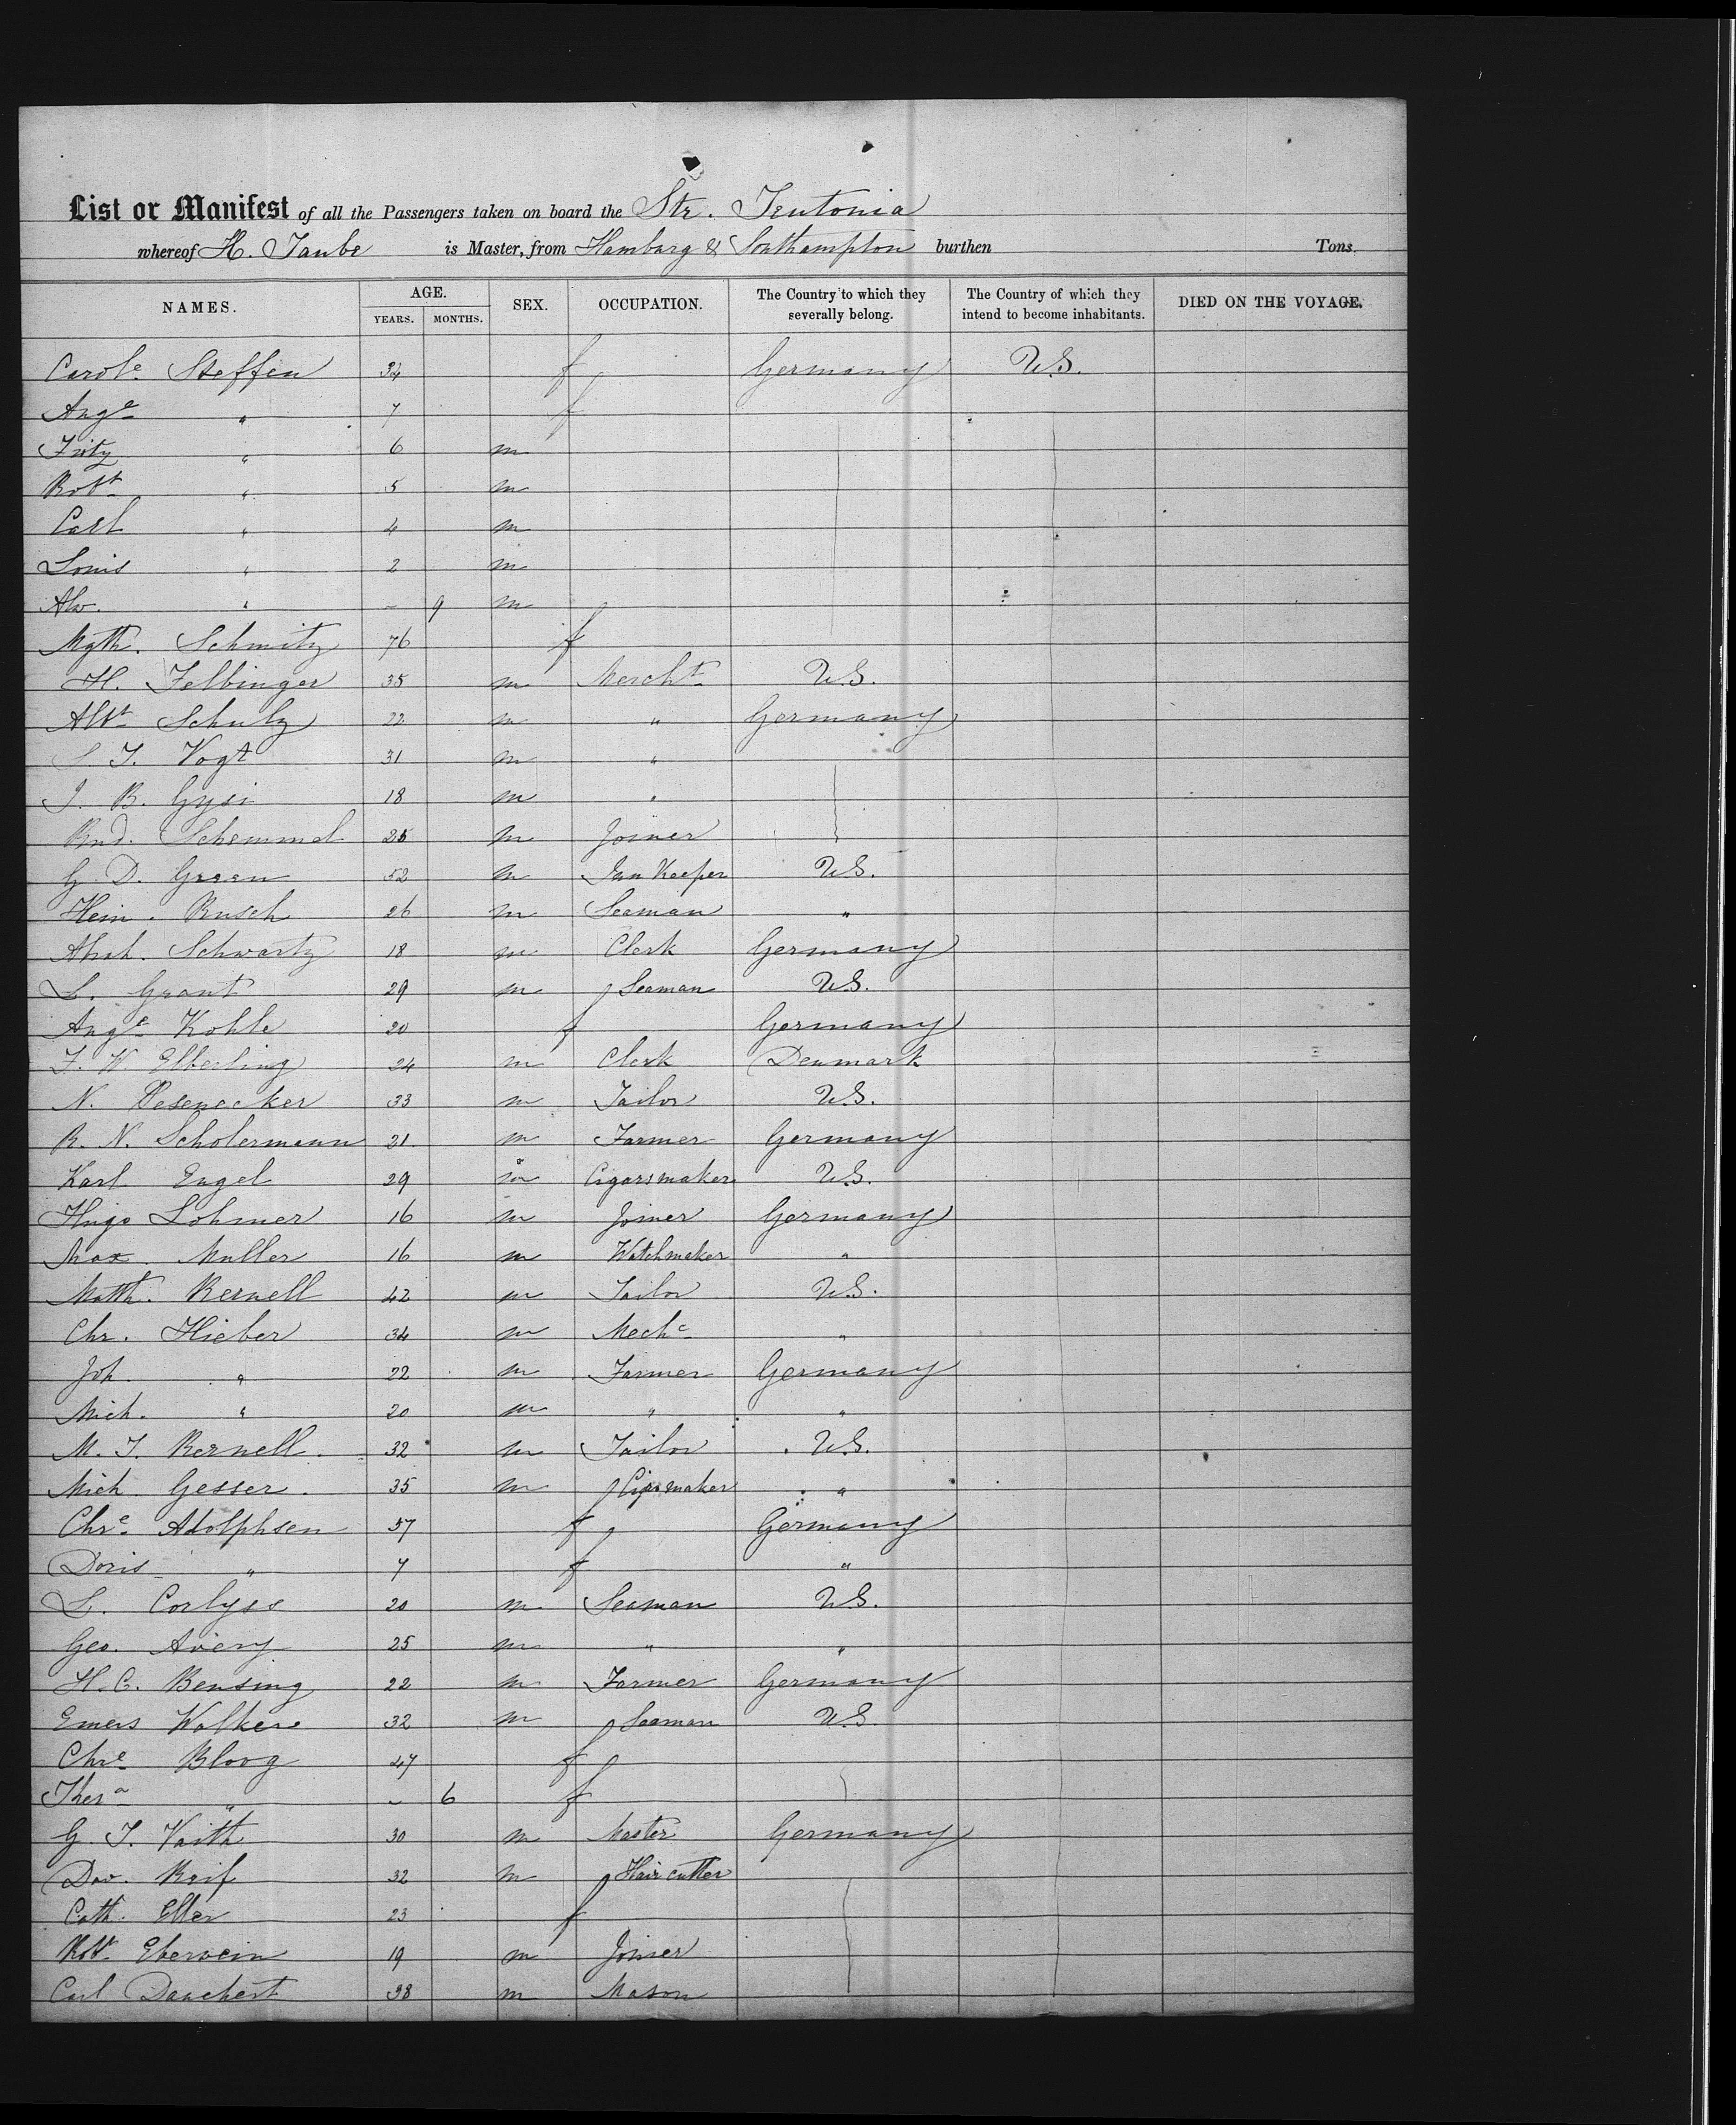 List or Manifest of all the Passengers taken on board the Str. Teutonia
whereof H. Taube is Master, from Hamburg & Southampton burthen Tons.
NAMES. AGE. YEARS. MONTHS. SEX. OCCUPATION. The Country to which they severally belong. The Country of which they intend to become inhabitants. DIED ON THE VOYAGE.
Carole Steffen 34 f Germany U.S.
Auge " 7 f
Fritz " 6 m
Robt " 5 m
Carl " 4 m
Louis " 2 m
Alw. " – 9 m
Mgth. Schmitz 76 f
H. Felbinger 35 m Mercht U.S.
Albt Schulz 22 m " Germany
T. Vogt 31 m "
J. B. Gysi 18 m "
Rud. Schemmel 25 m Joiner
G. D. Green 52 m Inn Keeper U.S.
Hein. Rusch 26 m Seaman "
Abrah. Schwartz 18 m Clerk Germany
L. Grant 29 m Seaman U.S.
Auge Kohle 20 f Germany
F. W. Elberling 24 m Clerk Denmark
N. 33 m Tailor U.S.
R. N. Scholermann 21 m Farmer Germany
Karl Engel 29 m Cigarsmaker U.S.
Hugo Lohmer 16 m Joiner Germany
Max Muller 16 m Watchmaker "
Matth. Bernell 42 m Tailor U.S.
Chr. Hieber 34 m Mechc "
Joh. " 22 m Farmer Germany
Mich. " 20 m " "
M. J. Bernell 32 m Tailor U.S.
Mich. Gesser 35 m "
Chre Adolphsen 57 f Germany
Doris " 7 f "
L. Corlyss 20 m Seaman U.S.
Geo. Avery 25 m " "
H. C. Bensing 22 m Farmer Germany
Emers Walker 32 m Seaman U.S.
Chre Bloog 27 f
Thera " – 6 f
G. J. Vaith 30 m Master Germany
Dav. Reif 32 m Hair cutter
Cath. Eller 23 f
Robt Eberwein 19 m Joiner
Carl Danchert 38 m Mason